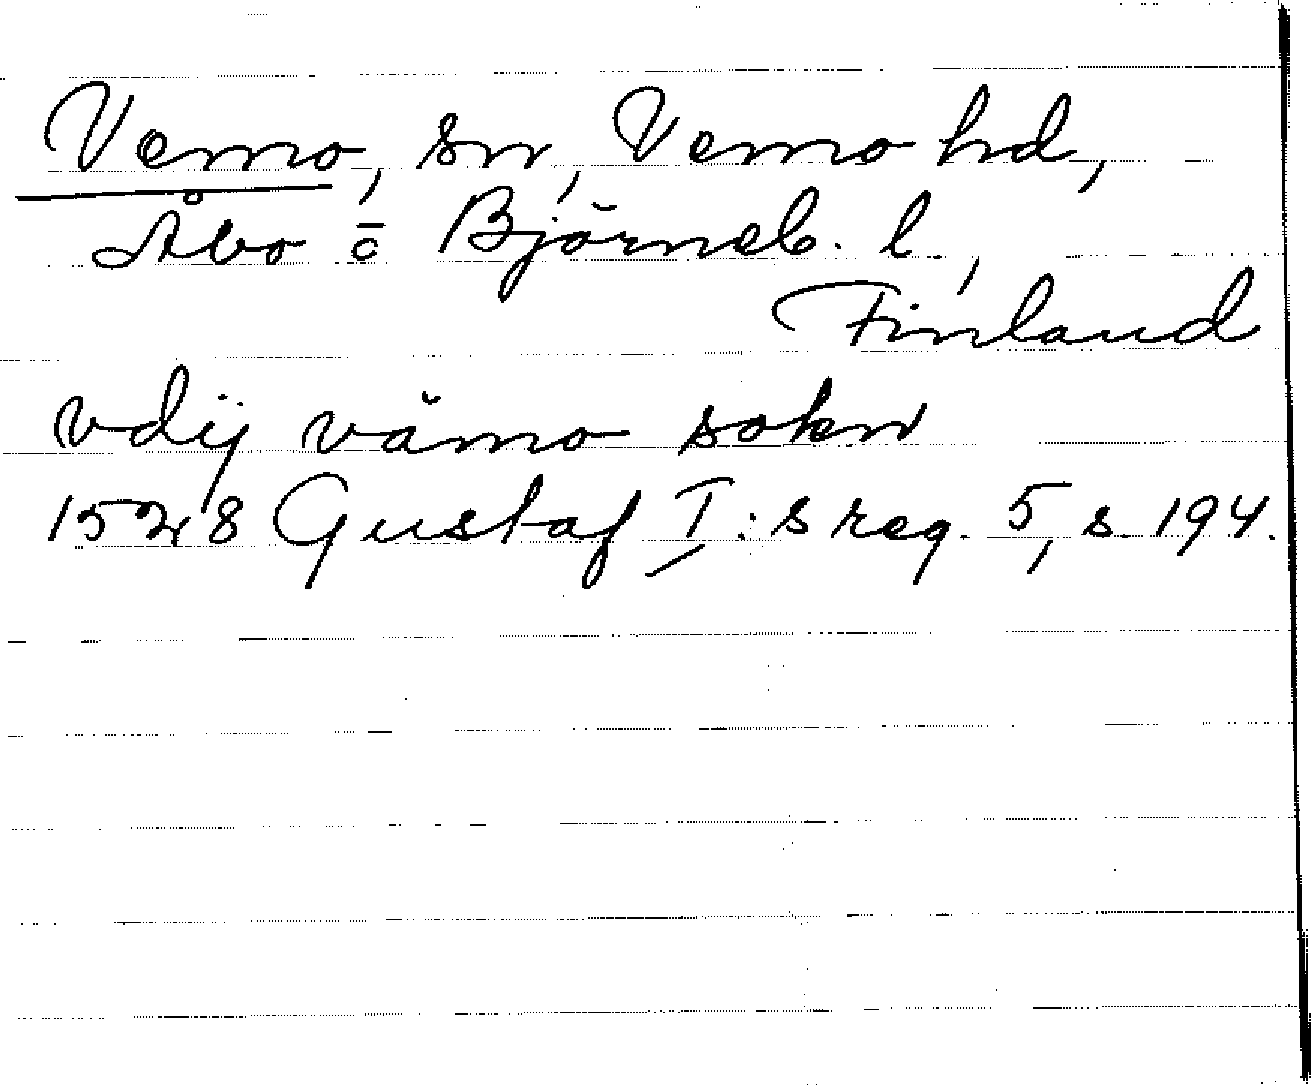 Vemo, sn, Vemo hd,
Åbo o Björneb. l.,
Finland
vdij våmo sokn
1528 Gustaf I:s reg. 5, s. 194.